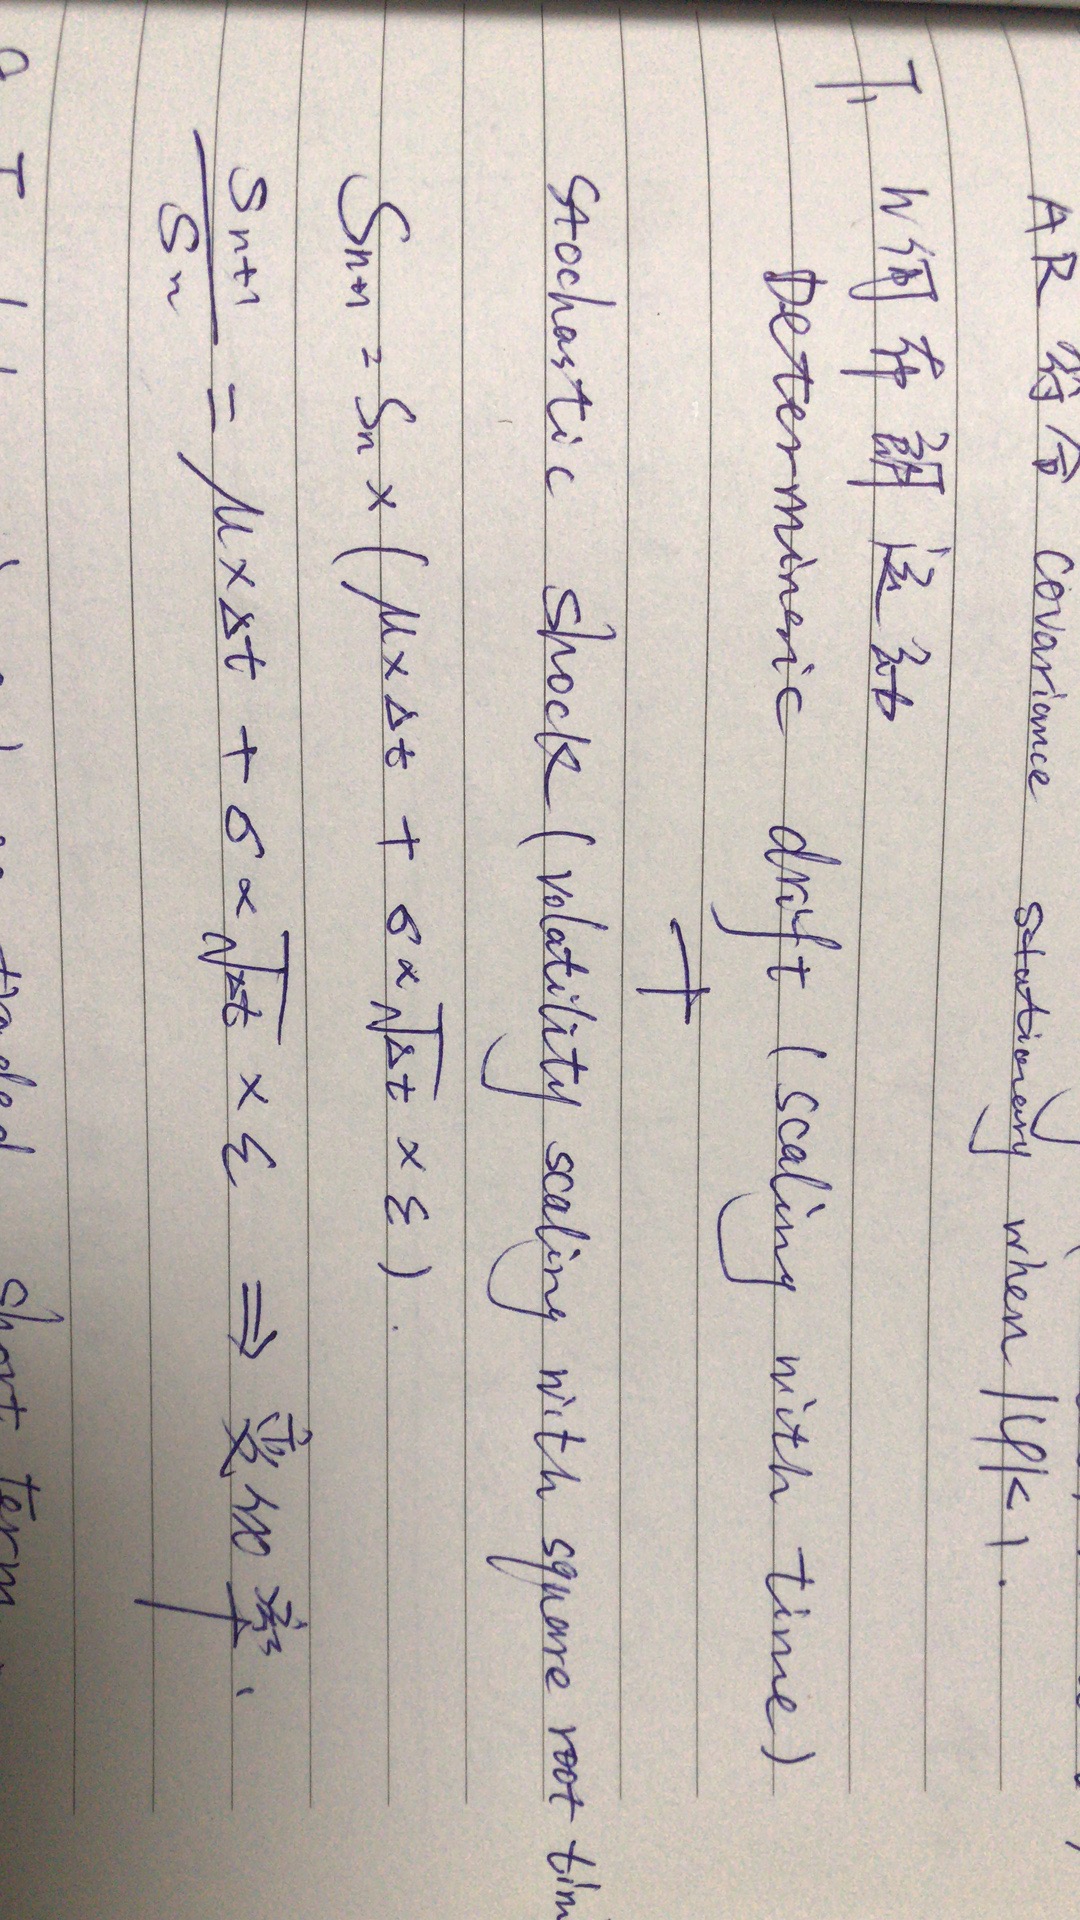 AR 符合 covariance stationary when |φ|<1.
T1 W何布朗运动
Determineric drift (scaling with time)
+
Stochastic shock (volatility scaling with square root tim
Sn+1 = Sn × (μ×Δt + σ×√Δt × ε).
Sn+1/Sn = μ×Δt + σ×√Δt × ε ⇒ 变化率.
short term